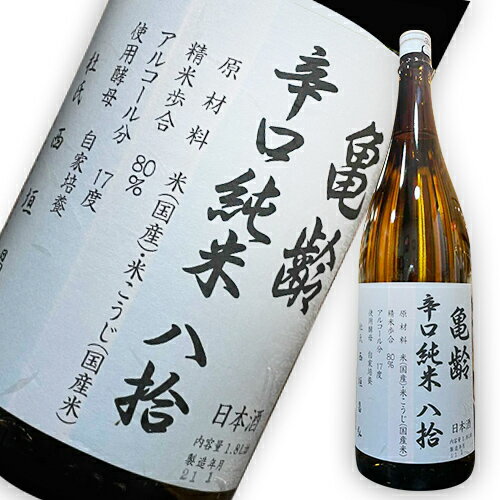 亀齢
辛口純米 八拾
原材料 米(国産)・米こうじ(国産米)
精米歩合 80%
アルコール分 17度
使用酵母 自家培養
杜氏 西垣昌弘
日本酒
内容量1.8L詰
製造年月
21 1
亀齢
辛口純米 八拾
原材料 米(国産)・米こうじ(国産米)
精米歩合 80%
アルコール分 17度
使用酵母 自家培養
杜氏 西垣昌弘
日本酒
内容量1.8L詰
製造年月
21 1